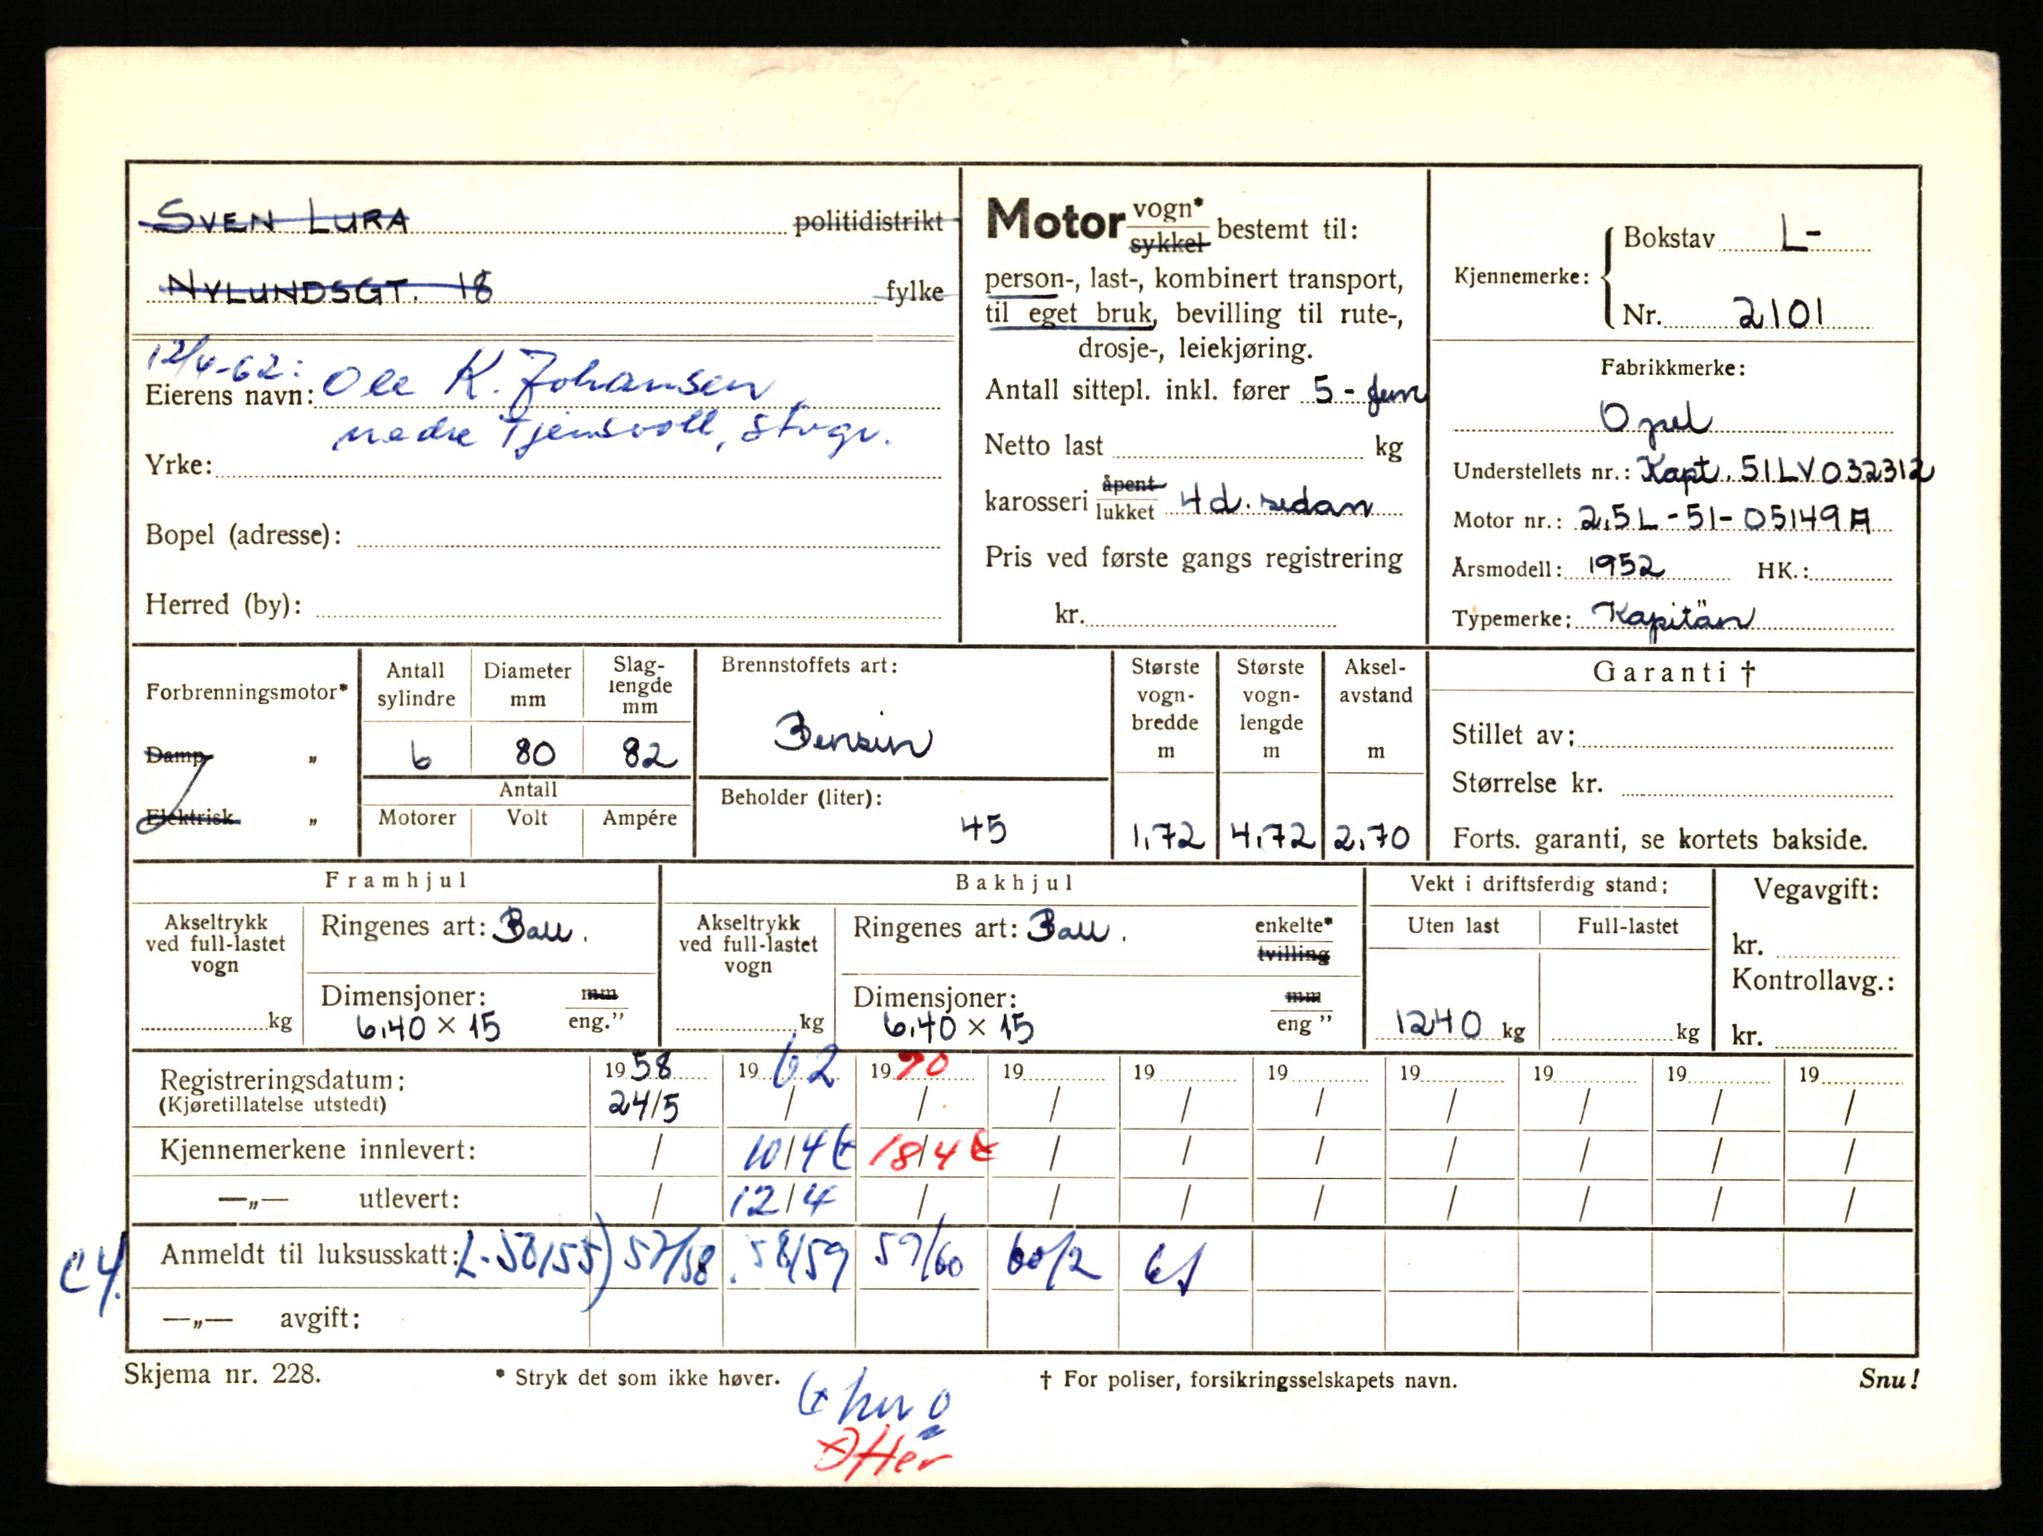 SVEN LURA politidistrikt
NYLUNDSGT. 18 fylke
12/4-62:
Eierens navn: Ole K. Johansen,
nedre Tjensvoll, Stvgr.
Yrke:
Bopel (adresse):
Herred (by):
Motor vogn* sykkel bestemt til:
person-, last-, kombinert transport,
til eget bruk, bevilling til rute-,
drosje-, leiekjøring.
Antall sittepl. inkl. fører 5 - fem
Netto last kg
karosseri åpent lukket 4 d. sedan
Pris ved første gangs registrering
kr.
Kjennemerke: Bokstav L-
Nr. 2101
Fabrikkmerke:
Opel
Understellets nr.: Kapt. 51LV032312
Motor nr.: 2,5L-51-05149A
Årsmodell: 1952 HK.:
Typemerke: Kapitän
Forbrenningsmotor*
Damp „
Elektrisk „
Antall sylindre 6
Diameter mm 80
Slag-lengde mm 82
Antall
Motorer Volt Ampére
Brennstoffets art:
Bensin
Beholder (liter):
45
Største vogn-bredde m 1,72
Største vogn-lengde m 4,72
Aksel-avstand m 2,70
Garanti †
Stillet av:
Størrelse kr.
Forts. garanti, se kortets bakside.
Framhjul
Akseltrykk ved full-lastet vogn
kg
Ringenes art: Ball.
Dimensjoner: mm
6,40 × 15 eng.”
Bakhjul
Akseltrykk ved full-lastet vogn
kg
Ringenes art: Ball. enkelte* tvilling
Dimensjoner: mm
6,40 × 15 eng ”
Vekt i driftsferdig stand:
Uten last Full-lastet
1240 kg kg
Vegavgift:
kr.
Kontrollavg.:
kr.
Registreringsdatum: 1958 1962 1970 19 19 19 19 19 19 19
(Kjøretillatelse utstedt) 24/5 / / / / / / / / /
Kjennemerkene innlevert: / 10/4 18/4 / / / / / / /
—„— utlevert: / 12/4 / / / / / / / /
Anmeldt til luksusskatt: L-58/55) 57/58 58/59 59/60 60/2 61
—„— avgift:
Skjema nr. 228. * Stryk det som ikke høver. † For poliser, forsikringsselskapets navn. Snu!